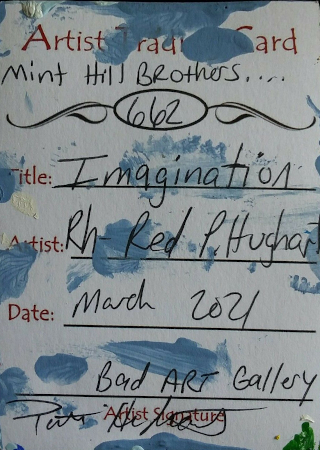 Artist Trad Card
Mint Hill Brothers....
662
Title: Imagination
Artist: Rh- Red P. Hughart
Date: March 2021
Bad ART Gallery
Artist Signature